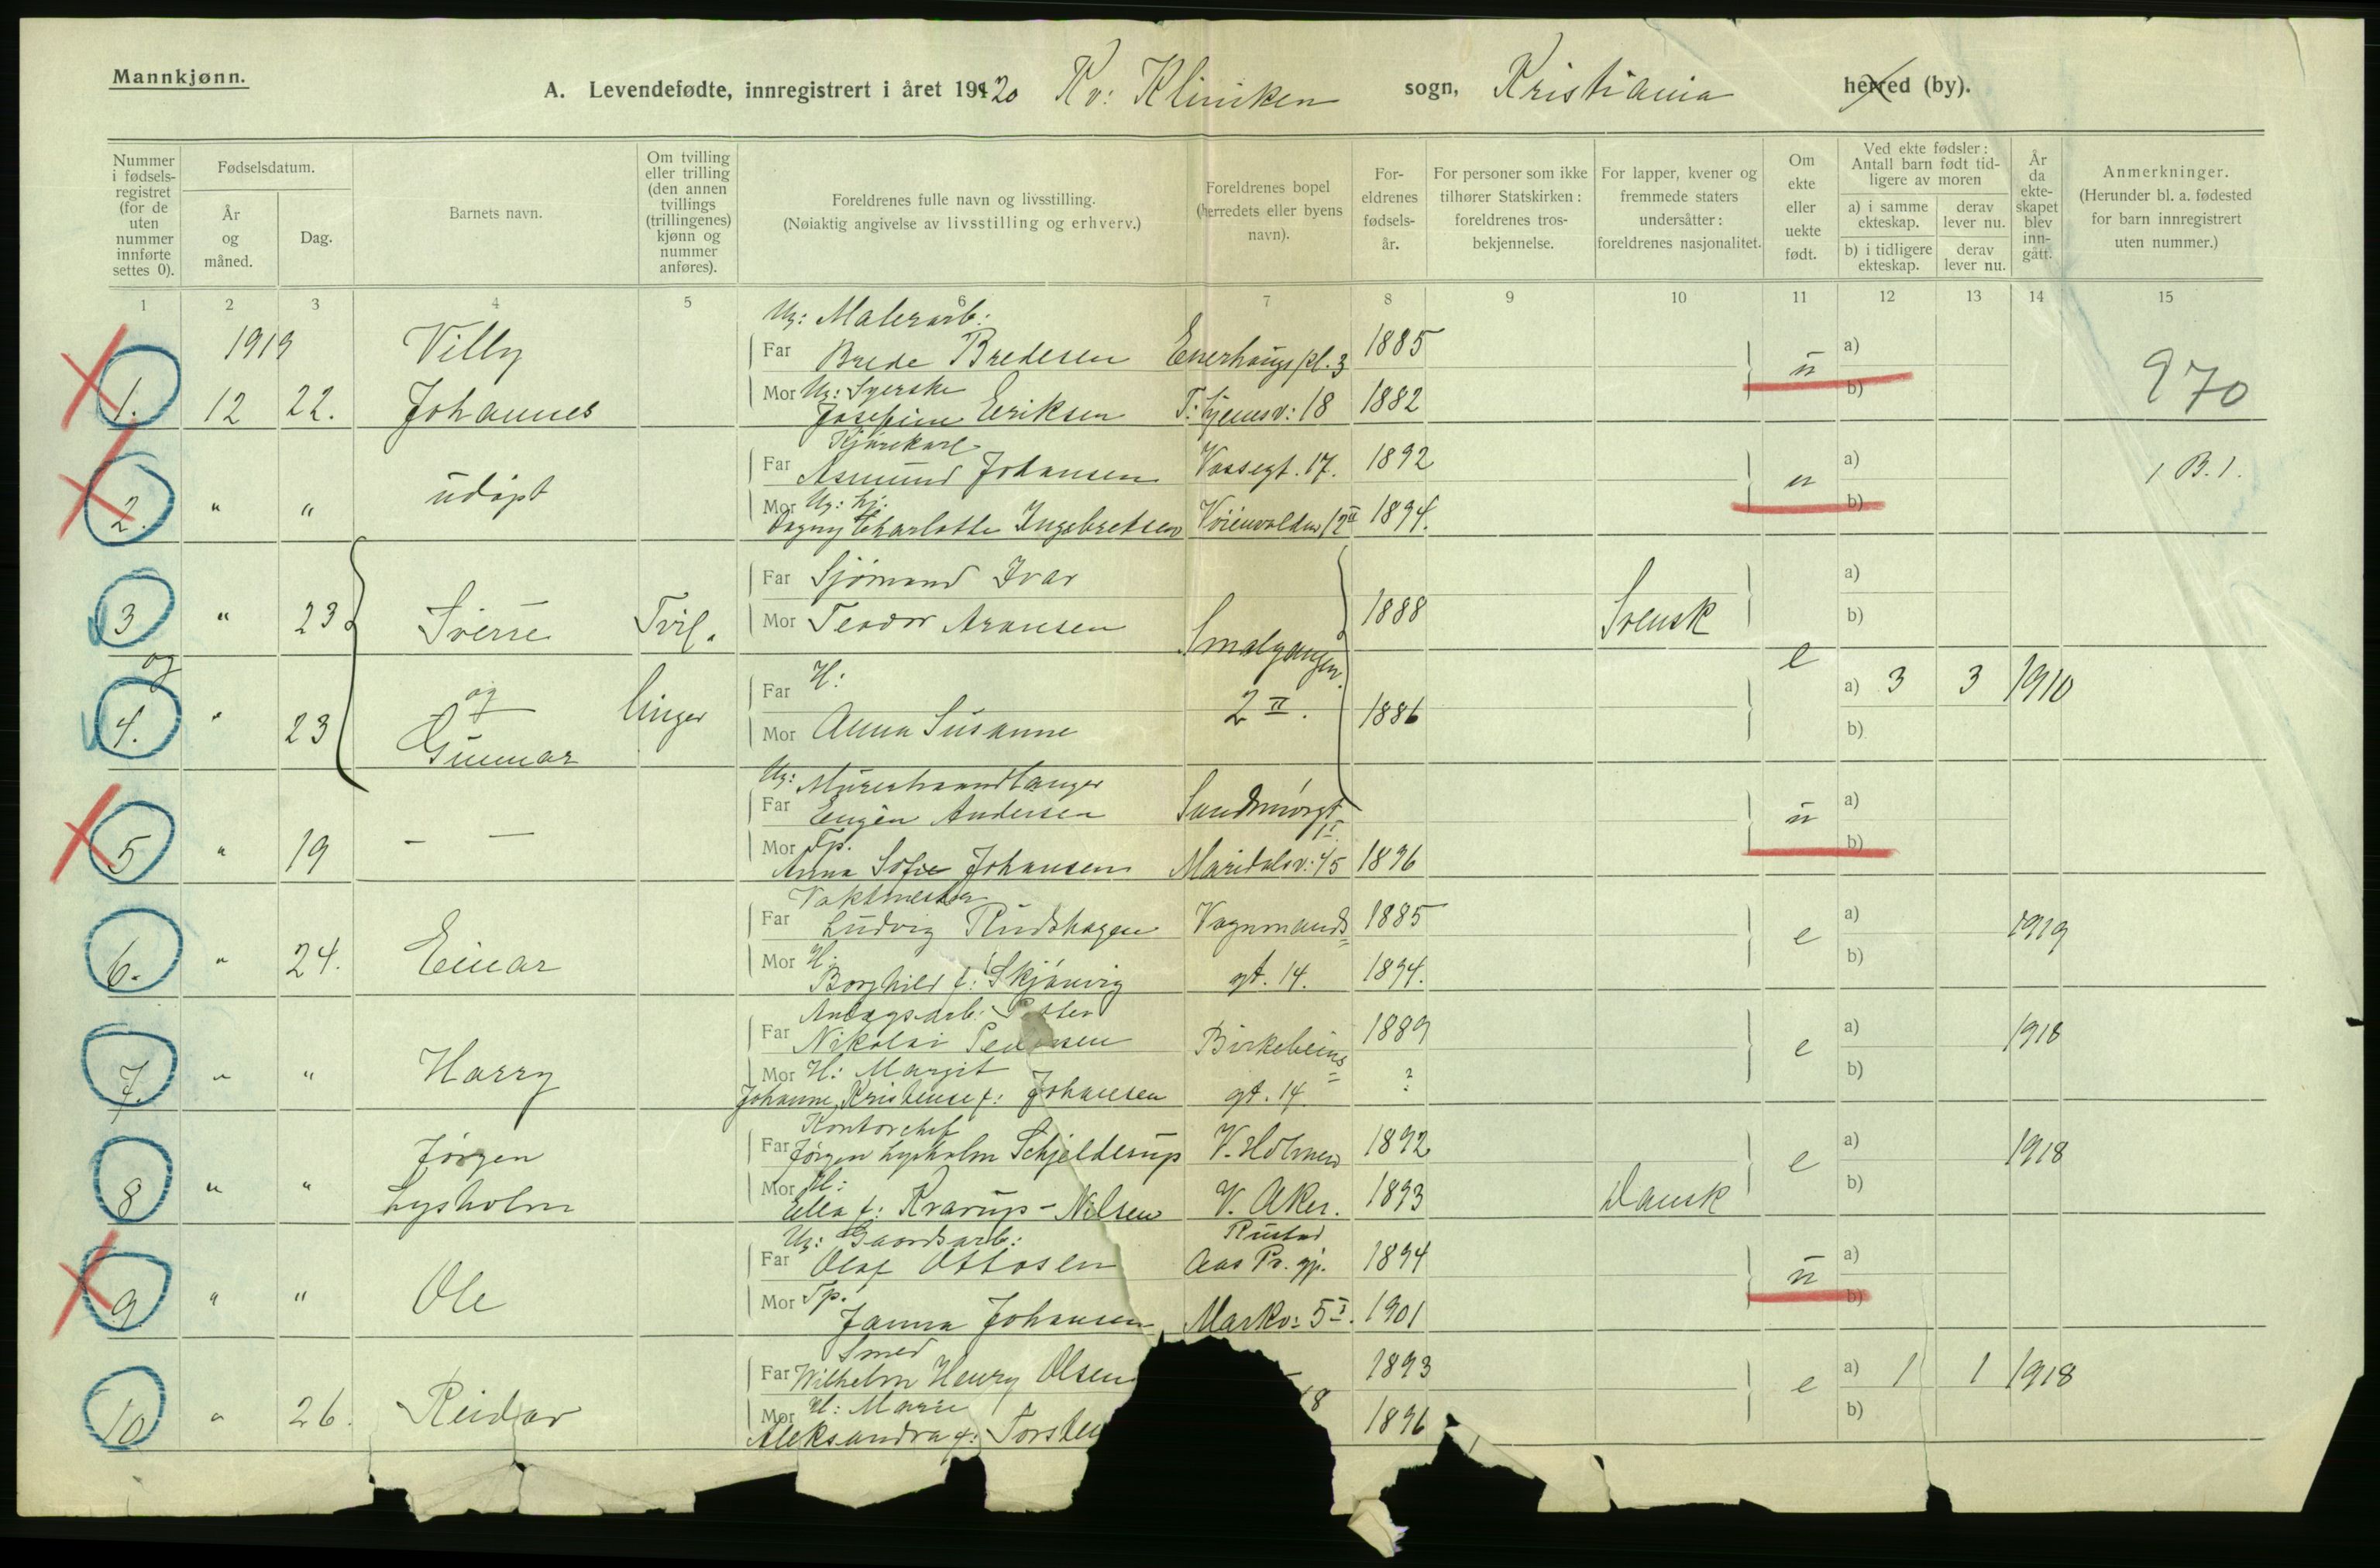 Mannkjønn.
A. Levendefødte, innregistrert i året 1920 Kv: Kliniken sogn, Kristiania herred (by).
Nummer i fødselsregistret (for de uten nummer innførte settes 0).
Fødselsdatum.
År og måned.
Dag.
Barnets navn.
Om tvilling eller trilling (den annen tvillings (trillingenes) kjønn og nummer anføres).
Foreldrenes fulle navn og livsstilling.
(Nøiaktig angivelse av livsstilling og erhverv.)
Foreldrenes bopel (herredets eller byens navn).
Foreldrenes fødselsår.
For personer som ikke tilhører Statskirken: foreldrenes trosbekjennelse.
For lapper, kvener og fremmede staters undersåtter: foreldrenes nasjonalitet.
Om ekte eller uekte født.
Ved ekte fødsler: Antall barn født tidligere av moren
a) i samme ekteskap.
derav lever nu.
b) i tidligere ekteskap.
derav lever nu.
År da ekteskapet blev inngått.
Anmerkninger.
(Herunder bl. a. fødested for barn innregistrert uten nummer.)
1 2 3 4 5 6 7 8 9 10 11 12 13 14 15
Ug: Malerarb:
1919 Villy Far Brede Bredesen Enerhaugs pl. 3 1885 u a)
1. 12 22. Johannes Mor Ug: Syerske 970
Josefine Eriksen T: Hjemsv: 18 1882 b)
Kjørekarl
Far Asmund Johansen Vossegt. 17. 1892 a)
2. " " udøpt u 1 B. 1.
Mor Ug: Hj. b)
Dagny Charlotte Ingebretsen 12 II 1894.
Far Sjømand Ivar a)
3 " 23 Sverre Tvil. Mor Teodor Aransen 1888 Svensk b)
og Smalgangen e
Far H: a) 3 3 1910
4. " 23 og linger 2 II. 1886
Gunnar Mor Anna Susanne b)
Ug: Murerhaandlanger
Far Eugen Andersen Sandmørgt a)
5 " 19 — — II. u
Mor Tp. b)
Anna Sofie Johansen Maridalsv: 45 1896
Vaktmester
Far Ludvig Rudshagen Vognmands= 1885 a) 1919
6. " 24. Einar e
Mor H: b)
Borghild f: Skjønvig gt. 14. 1894.
Anlægsarb:
Far Nikolai Pedersen Birkebeins= 1889 a) 1918
7. " " Harry e
Mor H: Margit ? b)
Johanne Kristense f: Johansen gt. 14
Kontorchef
Jørgen Far Jørgen Lysholm Schjelderup V. Holmen 1892 a) 1918
8 " " Lysholm e
Mor H: b)
Ella f: Krarup-Nilsen V. Aker. 1893 Dansk
Ug: Gaardsarb: Rustad
Far Olaf Ottosen Aas Pr. gj. 1894 a)
9 " " Ole u
Mor Tp. b)
Janna Johansen Markv: 5 I. 1901
Smed
Far Wilhelm Henry Olsen 1893 a) 1 1 1918
10 " 26. Reidar e
Mor H: Marie 18 b)
Aleksandra f: Torsten 1896